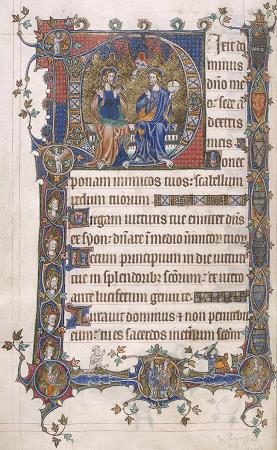 Dixit do
minus
dn̄o me
o: sede a
dextris
meis. Donec
ponam inimicos tuos: scabellum
pedum tuorum.
Virgam virtutis tue emittet dn̄s
ex syon: dn̄are ī medio inimicor̄ tuor̄
Tecum principium in die virtutis
tue in splendorib; sc̄orum: ex utero
ante luciferum genui te.
Iuravit dominus et non penitebit
eum: tu es sacerdos in eternum secd̄m